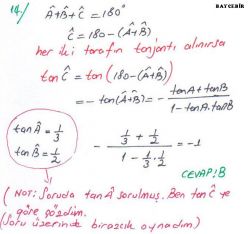 BAYCEBİR
14/ Â+B̂+Ĉ = 180°
Ĉ = 180-(Â+B̂)
her iki tarafın tanjantı alınırsa
tan Ĉ = tan (180-(Â+B̂))
= -tan(Â+B̂) = - (tanA+tanB)/(1-tanA.tanB)
tan Â = 1/3
tan B̂ = 1/2
- (1/3 + 1/2)/(1 - 1/3 . 1/2) = -1
CEVAP: B
( NOT: Soruda tan Â sorulmuş. Ben tan Ĉ ye
göre çözdüm.
(Soru üzerinde birazcık oynadım.)